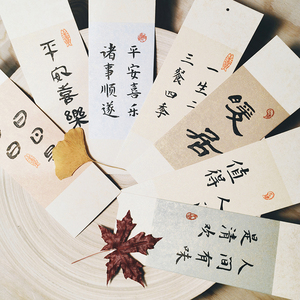 平安喜樂
平安喜乐
诸事顺遂
一生二
三餐四季
暖居
人
值得
人间有味
是清欢